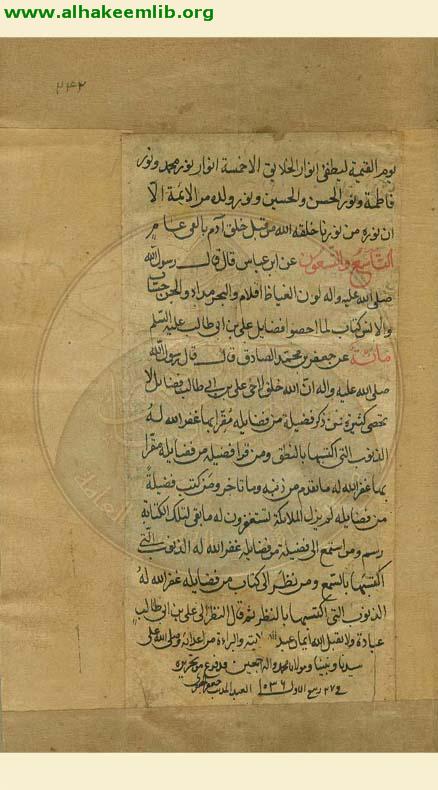 www.alhakeemlib.org
٢٤٢
يوم القيمة ليطفئ انوار الخلايق الا خمسة انوار نور محمد ونور
فاطمة ونور الحسن والحسين ونور ولده من الائمة الا
ان نوره من نورنا خلقه الله من قبل خلق آدم بالفى عام
التاسع والتسعون عن ابن عباس قال قال رسول الله
صلى الله عليه واله لو ان الغياظ اقلام والبحر مداد والجن حساب
والانس كتاب لما احصوا فضايل على بن ابى طالب عليه السلم
مائة عن جعفر بن محمد الصادق قال قال رسول الله
صلى الله عليه واله ان الله خلق لاخى على بن ابى طالب فضايل لا
تحصى كثيرة فمن ذكر فضيلة من فضايله مقرا بها غفر الله له
الذنوب التى اكتسبها بالنطق ومن قرا فضيلة من فضايله مقرا
بها غفر الله له ما تقدم من ذنبه وما تاخر ومن كتب فضيلة
من فضايله لم يزل الملائكة تستغفرون له ما بقى لتلك الكتابة
رسم ومن استمع الى فضيلة من فضايله غفر الله له الذنوب التى
اكتسبها بالسمع ومن نظر الى كتاب من فضايله غفر الله له
الذنوب التى اكتسبها بالنظر ثم قال النظر الى على بن ابى طالب
عبادة ولا يقبل الله ايمان عبد الا والبراءة من اعدائه وصلى الله على
سيدنا ونبينا ومولانا محمد واله اجمعين
فى ٢٧ ربيع الاول ١٠٣٦ العبد